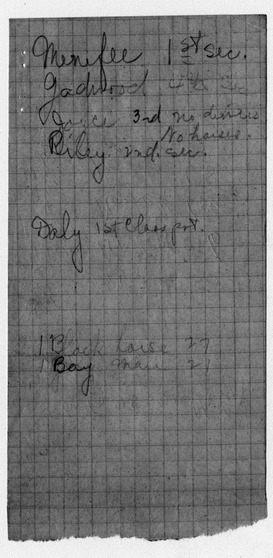 Menifee 1st Sec.
Gadwood 4th Sec
Joyce 3rd no drivers
No horses.
Riley. 2nd. Sec.
Daly 1st Class pvt.
1 Black horse 27
1 Bay Mare 21